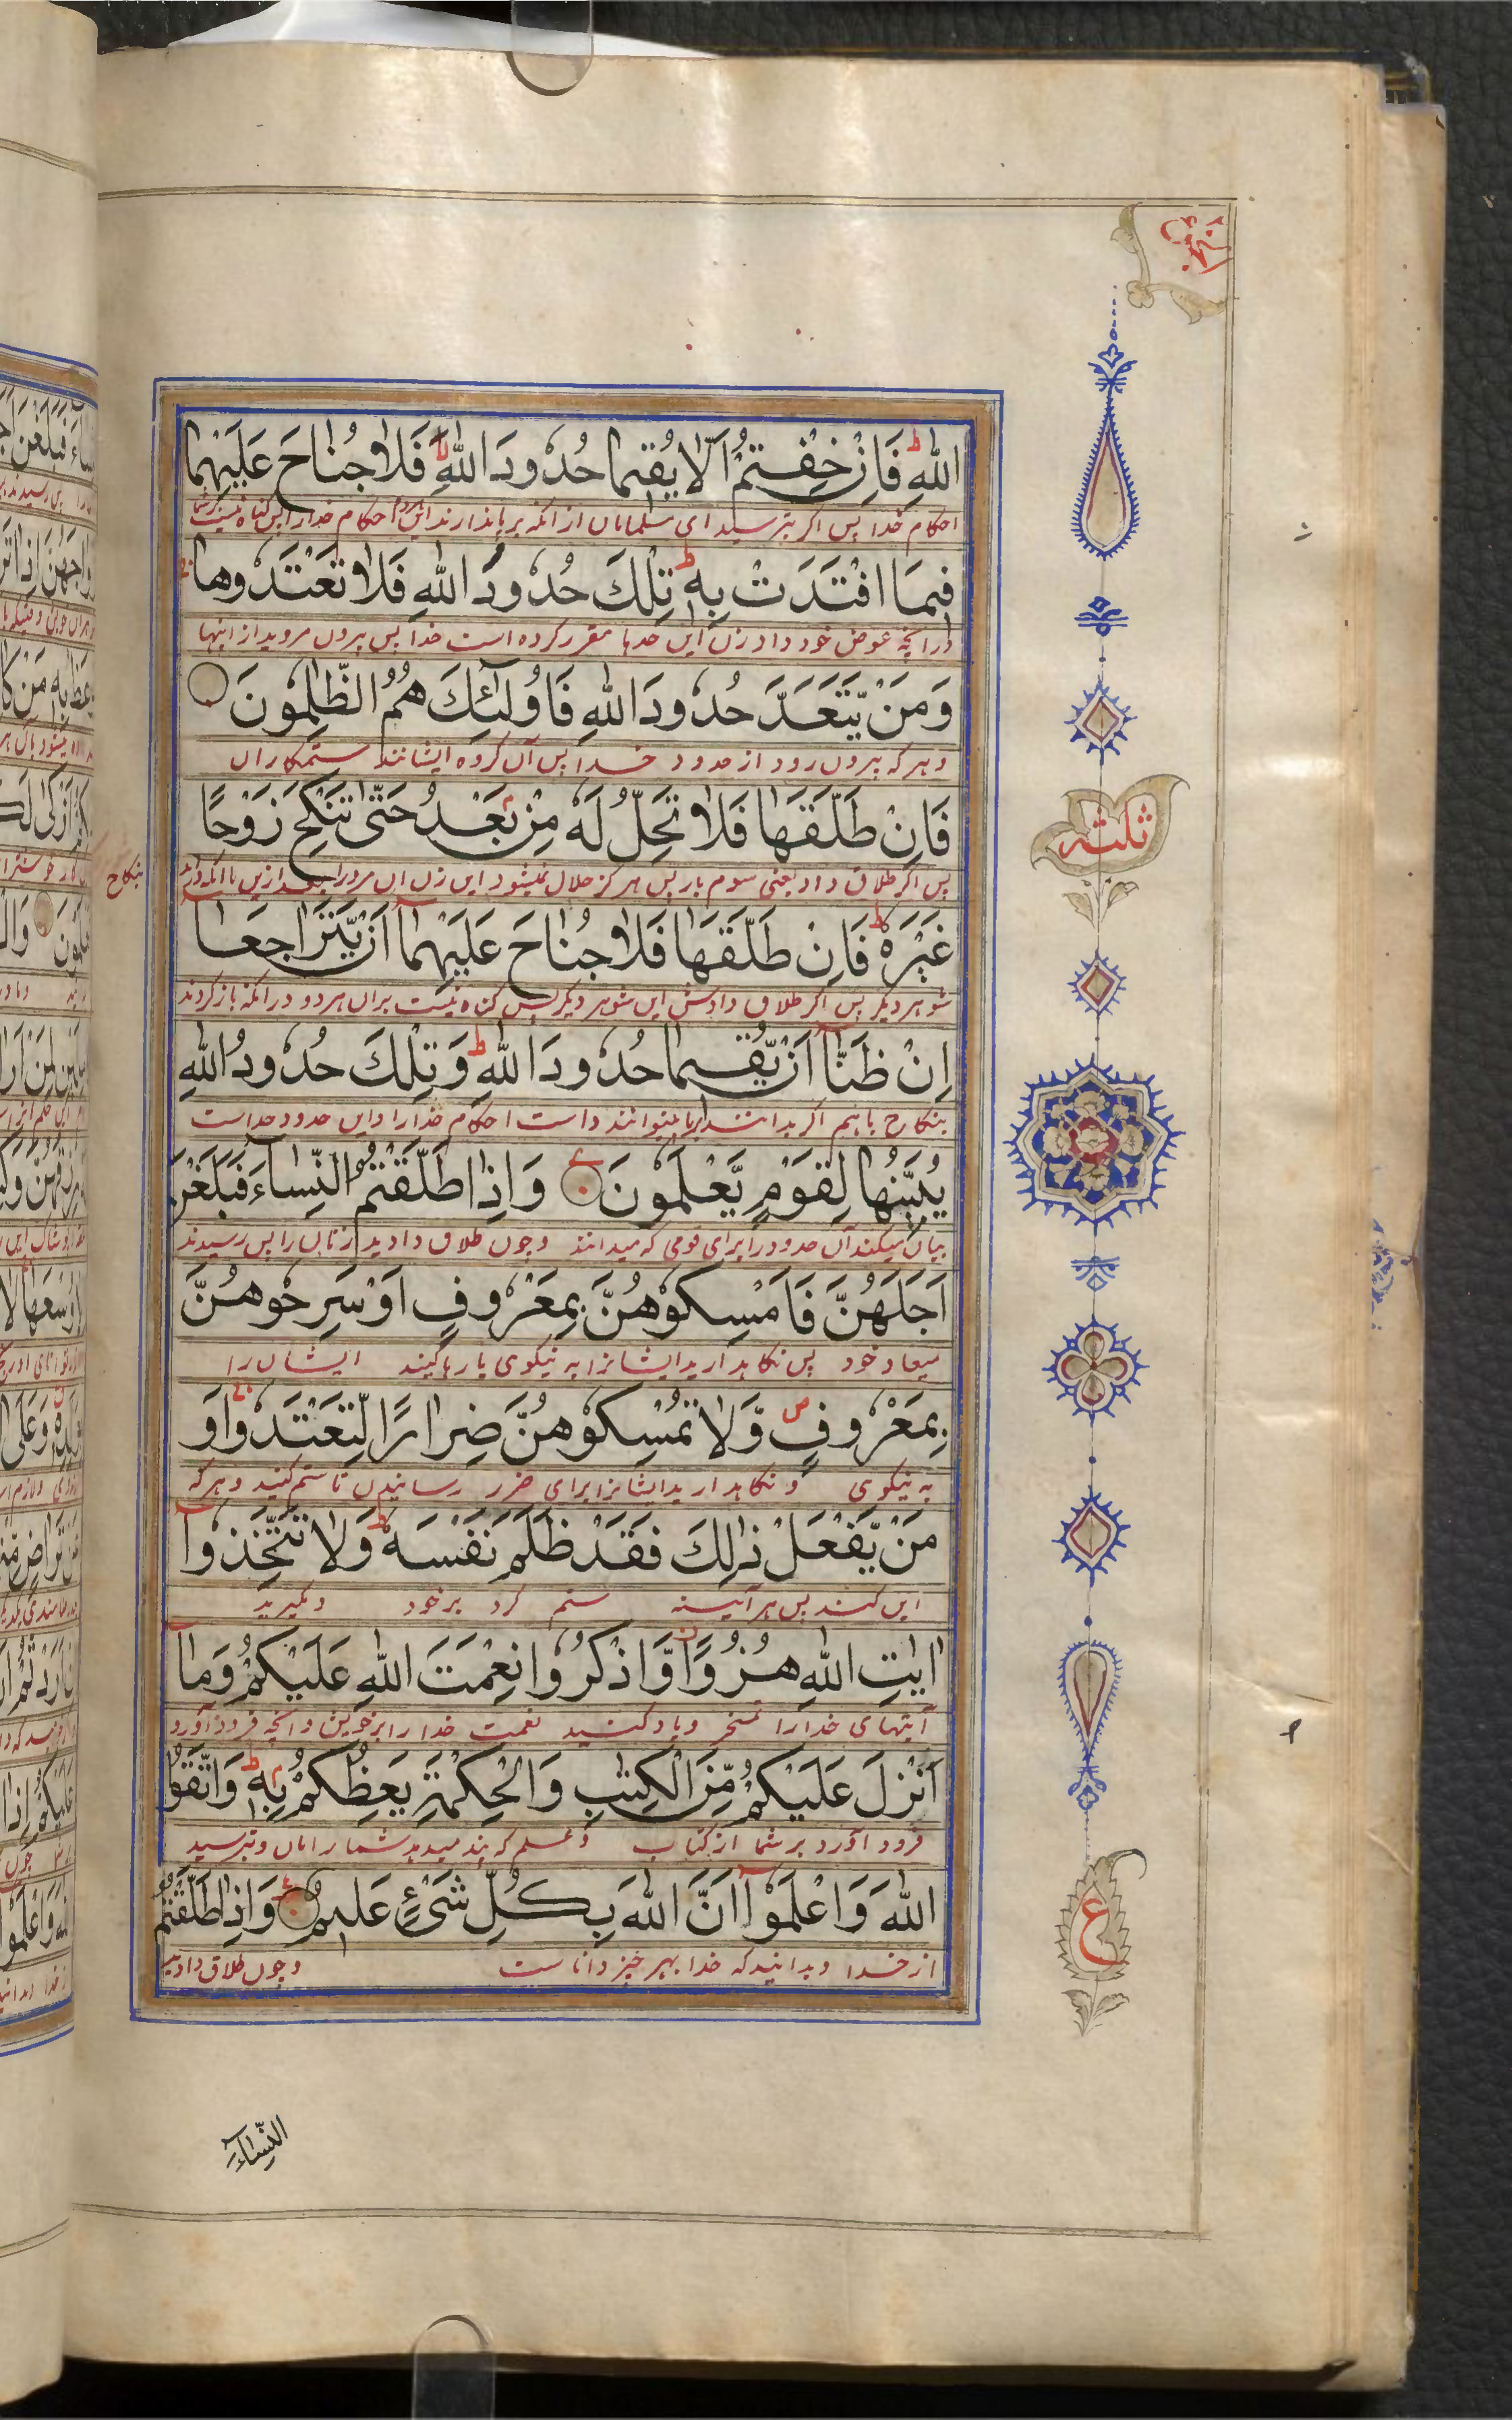 اللهِ فَاِنْ خِفْتُمْ اَلَّا يُقِيمَا حُدُودَ اللهِ فَلَا جُنَاحَ عَلَيْهِمَا
احکام خدا پس اگر بترسید ای مسلمانان از آنکه برپا ندارند این احکام خدا را پس گناه نیست
فِيمَا افْتَدَتْ بِهٖ تِلْكَ حُدُودُ اللهِ فَلَا تَعْتَدُوهَا
در آنچه عوض خود داد زن این حدها مقرر کرده است خدا پس بیرون مروید از اینها
وَمَنْ يَّتَعَدَّ حُدُودَ اللهِ فَاُولٰٓئِكَ هُمُ الظّٰلِمُونَ
و هر که بیرون رود از حدود خدا پس آن گروه ایشانند ستمکاران
فَاِنْ طَلَّقَهَا فَلَا تَحِلُّ لَهٗ مِنْۢ بَعْدُ حَتّٰى تَنْكِحَ زَوْجًا
پس اگر طلاق داد یعنی سوم بار پس هرگز حلال نمیشود این زن آن مرد را بعد ازین تا آنکه
بنکاح
غَيْرَهٗ فَاِنْ طَلَّقَهَا فَلَا جُنَاحَ عَلَيْهِمَآ اَنْ يَّتَرَاجَعَآ
شوهر دیگر پس اگر طلاق دادش این شوهر دیگر پس گناه نیست بران هر دو در آنکه باز گردند
اِنْ ظَنَّآ اَنْ يُّقِيمَا حُدُودَ اللهِ وَتِلْكَ حُدُودُ اللهِ
بنکاح باهم اگر بدانند برپا میتوانند داشت احکام خدا را و این حدود خداست
يُبَيِّنُهَا لِقَوْمٍ يَّعْلَمُونَ وَاِذَا طَلَّقْتُمُ النِّسَآءَ فَبَلَغْنَ
بیان میکند آن حدود را برای قومی که میدانند و چون طلاق دادید زنان را پس رسیدند
اَجَلَهُنَّ فَاَمْسِكُوهُنَّ بِمَعْرُوفٍ اَوْ سَرِّحُوهُنَّ
میعاد خود پس نگاهدارید ایشانرا به نیکوی یا رها کنید ایشان را
بِمَعْرُوفٍ وَّلَا تُمْسِكُوهُنَّ ضِرَارًا لِّتَعْتَدُوا وَ
به نیکوی و نگاه مدارید ایشانرا برای ضرر رسانیدن تا ستم کنید و هر که
مَنْ يَّفْعَلْ ذٰلِكَ فَقَدْ ظَلَمَ نَفْسَهٗ وَلَا تَتَّخِذُوٓا
این کند پس هر آئینه ستم کرد بر خود و مگیرید
اٰيٰتِ اللهِ هُزُوًا وَّاذْكُرُوا نِعْمَتَ اللهِ عَلَيْكُمْ وَمَآ
آیتهای خدا را تمسخر و یاد کنید نعمت خدا را بر خویش و آنچه فرود آورد
اَنْزَلَ عَلَيْكُمْ مِّنَ الْكِتٰبِ وَالْحِكْمَةِ يَعِظُكُمْ بِهٖ وَاتَّقُوا
فرود آورد بر شما از کتاب و علم که پند میدهد شما را بان و بترسید
اللهَ وَاعْلَمُوٓا اَنَّ اللهَ بِكُلِّ شَىْءٍ عَلِيمٌ وَاِذَا طَلَّقْتُمُ
از خدا و بدانید که خدا بهر چیز دانا ست و چون طلاق دادید
ثلثه
ع
النِّسَآءَ